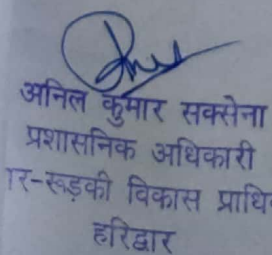 अनिल कुमार सक्सेना
प्रशासनिक अधिकारी
ार-रूड़की विकास प्राधि
हरिद्वार